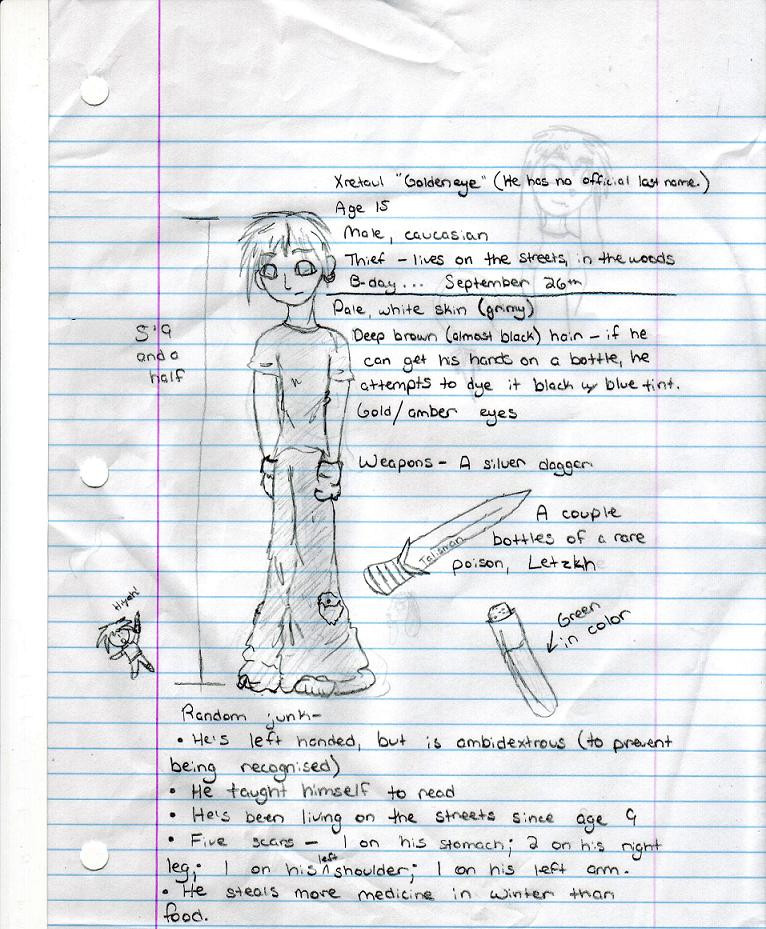 Xretaul "Goldeneye" (He has no official last name.)
Age 15
Male, caucasian
Thief - lives on the streets, in the woods
B-day... September 26th
Pale, white skin (grimy)
5'9
and a
half
Deep brown (almost black) hair - if he
can get his hands on a bottle, he
attempts to dye it black w/ blue tint.
Gold/amber eyes
Weapons - A silver dagger
Talisman
A couple
bottles of a rare
poison, Letzkh
Green
in color
Hiyah!
Random junk-
• He's left handed, but is ambidextrous (to prevent
being recognised)
• He taught himself to read
• He's been living on the streets since age 9
• Five scars - 1 on his stomach; 2 on his right
leg; 1 on his left shoulder; 1 on his left arm.
• He steals more medicine in winter than
food.